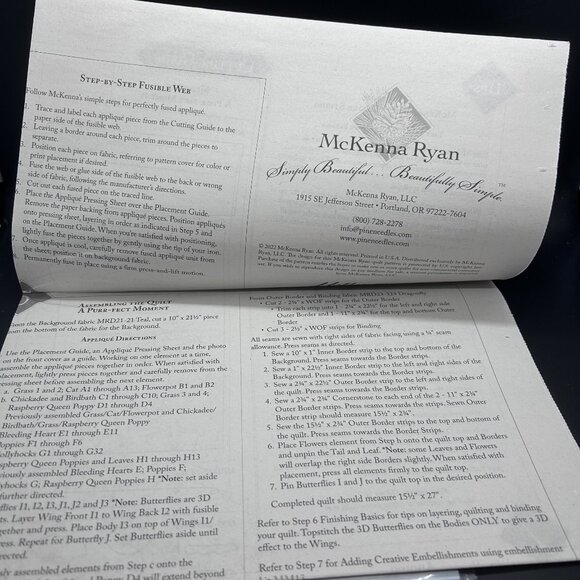 STEP-BY-STEP FUSIBLE WEB
Follow McKenna's simple steps for perfectly fused appliqué.
1. Trace and label each appliqué piece from the Cutting Guide to the
paper side of the fusible web.
2. Leaving a border around each piece, trim around the pieces to
separate.
3. Position each piece on fabric, referring to pattern cover for color or
print placement if desired.
4. Fuse the web or glue side of the fusible web to the back or wrong
side of fabric, following the manufacturer's directions.
5. Cut out each fused piece on the traced line.
Place the Appliqué Pressing Sheet over the Placement Guide.
Remove the paper backing from appliqué pieces. Position appliqués
onto pressing sheet, layering in order as indicated in Step 5 and
on the Placement Guide. When you're satisfied with positioning,
lightly fuse the pieces together by gently using the tip of your iron.
7. Once appliqué is cool, carefully remove fused appliqué unit from
the sheet; position it on background fabric.
Permanently fuse in place using a firm press-and-lift motion.
McKenna Ryan
Simply Beautiful... Beautifully Simple.™
McKenna Ryan, LLC
1915 SE Jefferson Street • Portland, OR 97222-7604
(800) 728-2278
info@pineneedles.com
www.pineneedles.com
© 2022 McKenna Ryan. All rights reserved. Printed in U.S.A. Distributed exclusively by McKenna
Ryan, LLC.
ASSEMBLING THE QUILT
A PURR-FECT MOMENT
From the Background fabric MRD21-21-Teal, cut a 10" x 21½" piece
from the bottom of the fabric for the Background.
APPLIQUÉ DIRECTIONS
Use the Placement Guide, an Appliqué Pressing Sheet and the photo
on the front cover as a guide. Working on one element at a time,
assemble the appliqué pieces together in order. When satisfied with
placement, lightly press pieces together and carefully remove from the
pressing sheet before assembling the next element.
a. Grass 1 and 2; Cat A1 through A13; Flowerpot B1 and B2
Chickadee and Birdbath C1 through C10; Grass 3 and 4;
Raspberry Queen Poppy D1 through D4
Previously assembled Grass/Cat/Flowerpot and Chickadee/
Birdbath/Grass/Raspberry Queen Poppy
Bleeding Heart E1 through E11
Poppies F1 through F6
Hollyhocks G1 through G32
Raspberry Queen Poppies and Leaves H1 through H13
Previously assembled Bleeding Hearts E; Poppies F;
Hollyhocks G; Raspberry Queen Poppies H *Note: set aside
further directed.
Butterflies I1, I2, I3, J1, J2 and J3 *Note: Butterflies are 3D
Layer Wing Front I1 to Wing Back I2 with fusible
together and press. Place Body I3 on top of Wings I1/
Press. Repeat for Butterfly J. Set Butterflies aside until
directed.
assembled elements from Step c onto the
D4 will extend beyond
From Outer Border and Binding fabric MRD21-323 Dragonfly
• Cut 2 - 2¾" x WOF strips for the Outer Border
• Trim each strip into 1 - 2¾" x 22½" for the left and right side
Outer Border and 1 - 11" x 2¾" for the top and bottom Outer
Border
• Cut 3 - 2½" x WOF strips for Binding
All seams are sewn with right sides of fabric facing using a ¼" seam
allowance. Press seams as directed.
1. Sew a 10" x 1" Inner Border strip to the top and bottom of the
Background. Press seams towards the Border strips.
2. Sew a 1" x 22½" Inner Border strip to the left and right of the
Background. Press seams towards the Border strips.
3. Sew a 2¾" x 22½" Outer Border strip to the left and right sides of
the quilt. Press seams towards the Border Strips.
4. Sew a 2¾" x 2¾" Cornerstone to each end of the 2 - 11" x 2¾"
Outer Border strips. Press seams towards the strips. Sewn Outer
Border strip should measure 15½" x 2¾".
5. Sew the 15½" x 2¾" Outer Border strips to the top and bottom of
the quilt. Press seams towards the Border Strips.
6. Place Flowers element from Step h onto quilt top and Borders
and unpin the Tail and Leaf. *Note: some Leaves and Flowers
will overlap the right side Borders slightly. When satisfied with
placement, press all elements firmly to the quilt top.
7. Pin Butterflies I and J to the quilt top in the desired position.
Completed quilt should measure 15½" x 27".
Refer to Step 6 Finishing Basics for tips on layering, quilting and binding
your quilt. Topstitch the 3D Butterflies on the Bodies ONLY to give a 3D
effect to the Wings.
Refer to Step 7 for Adding Creative Embellishments using embellishment